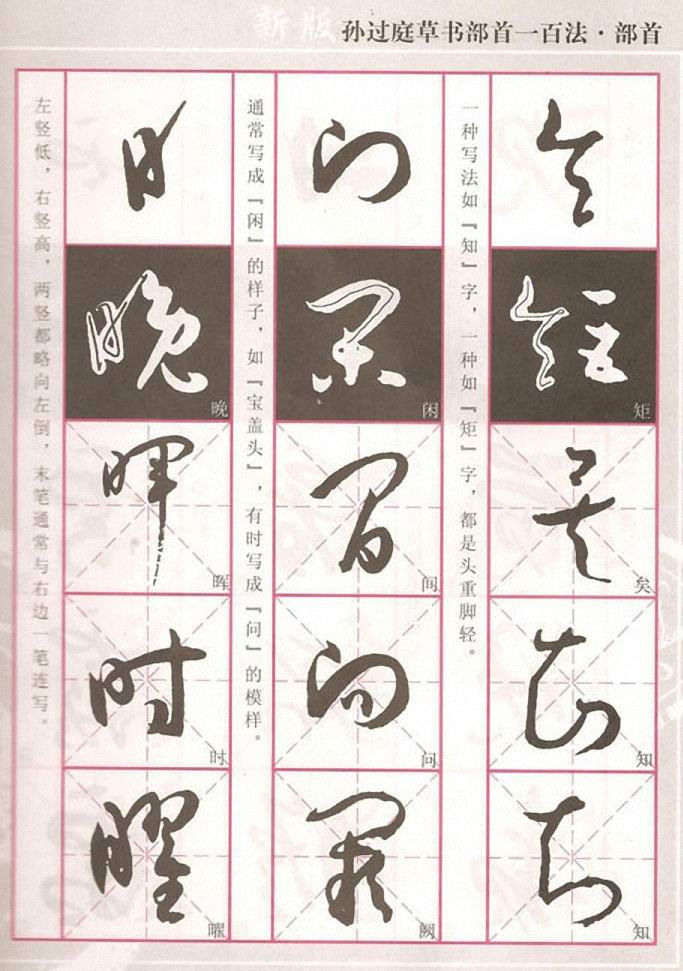 新版 孙过庭草书部首一百法·部首
矩
矣
知
知
一种写法如『知』字，一种如『矩』字，都是头重脚轻。
闲
间
问
阙
通常写成『闲』的样子，如『宝盖头』，有时写成『问』的模样。
晚
晖
时
曜
左竖低，右竖高，两竖都略向左倒，末笔通常与右边一笔连写。